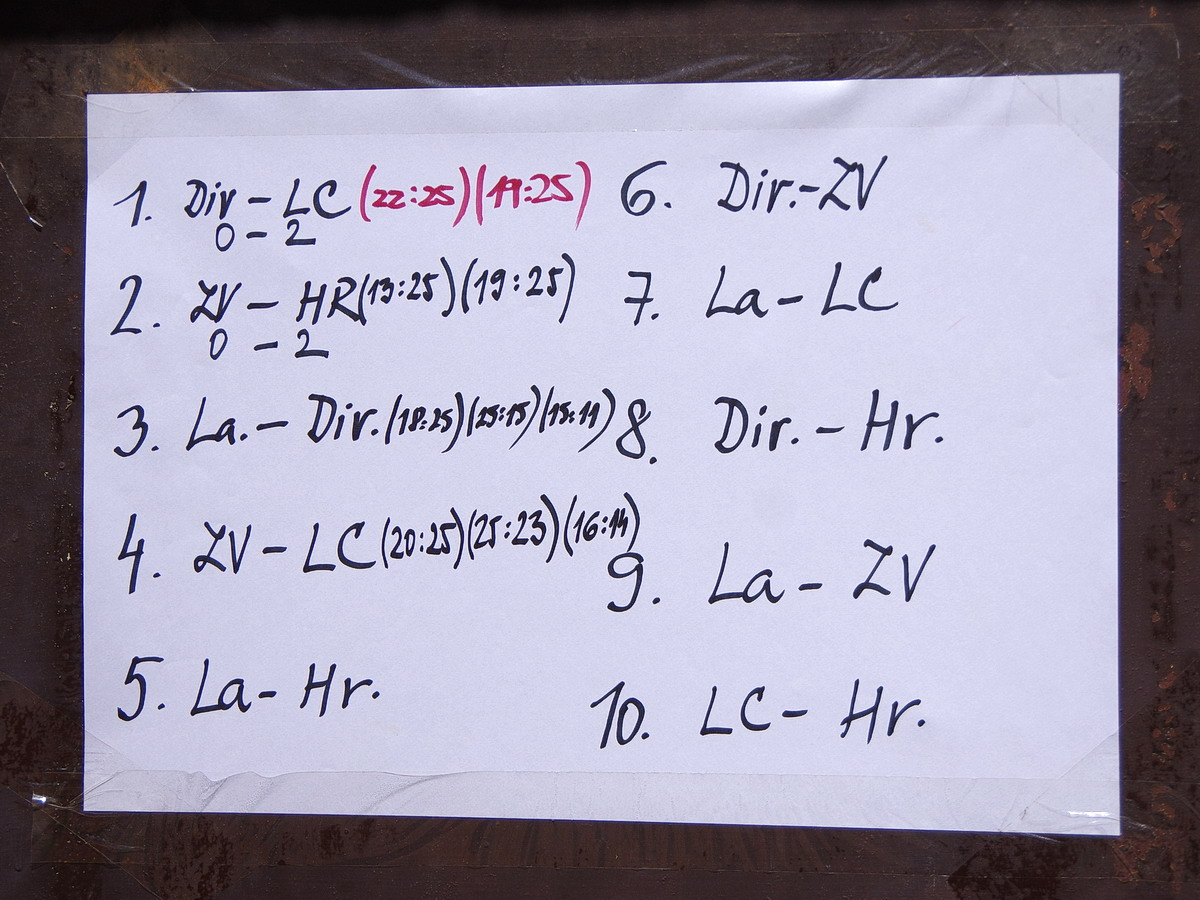 1. Dir - LC (22:25)(19:25)
0 - 2
2. ZV - HR (13:25)(19:25)
0 - 2
3. La. - Dir. (18:25)(25:15)(15:11)
4. ZV - LC (20:25)(25:23)(16:14)
5. La - Hr.
6. Dir. - ZV
7. La - LC
8. Dir. - Hr.
9. La - ZV
10. LC - Hr.